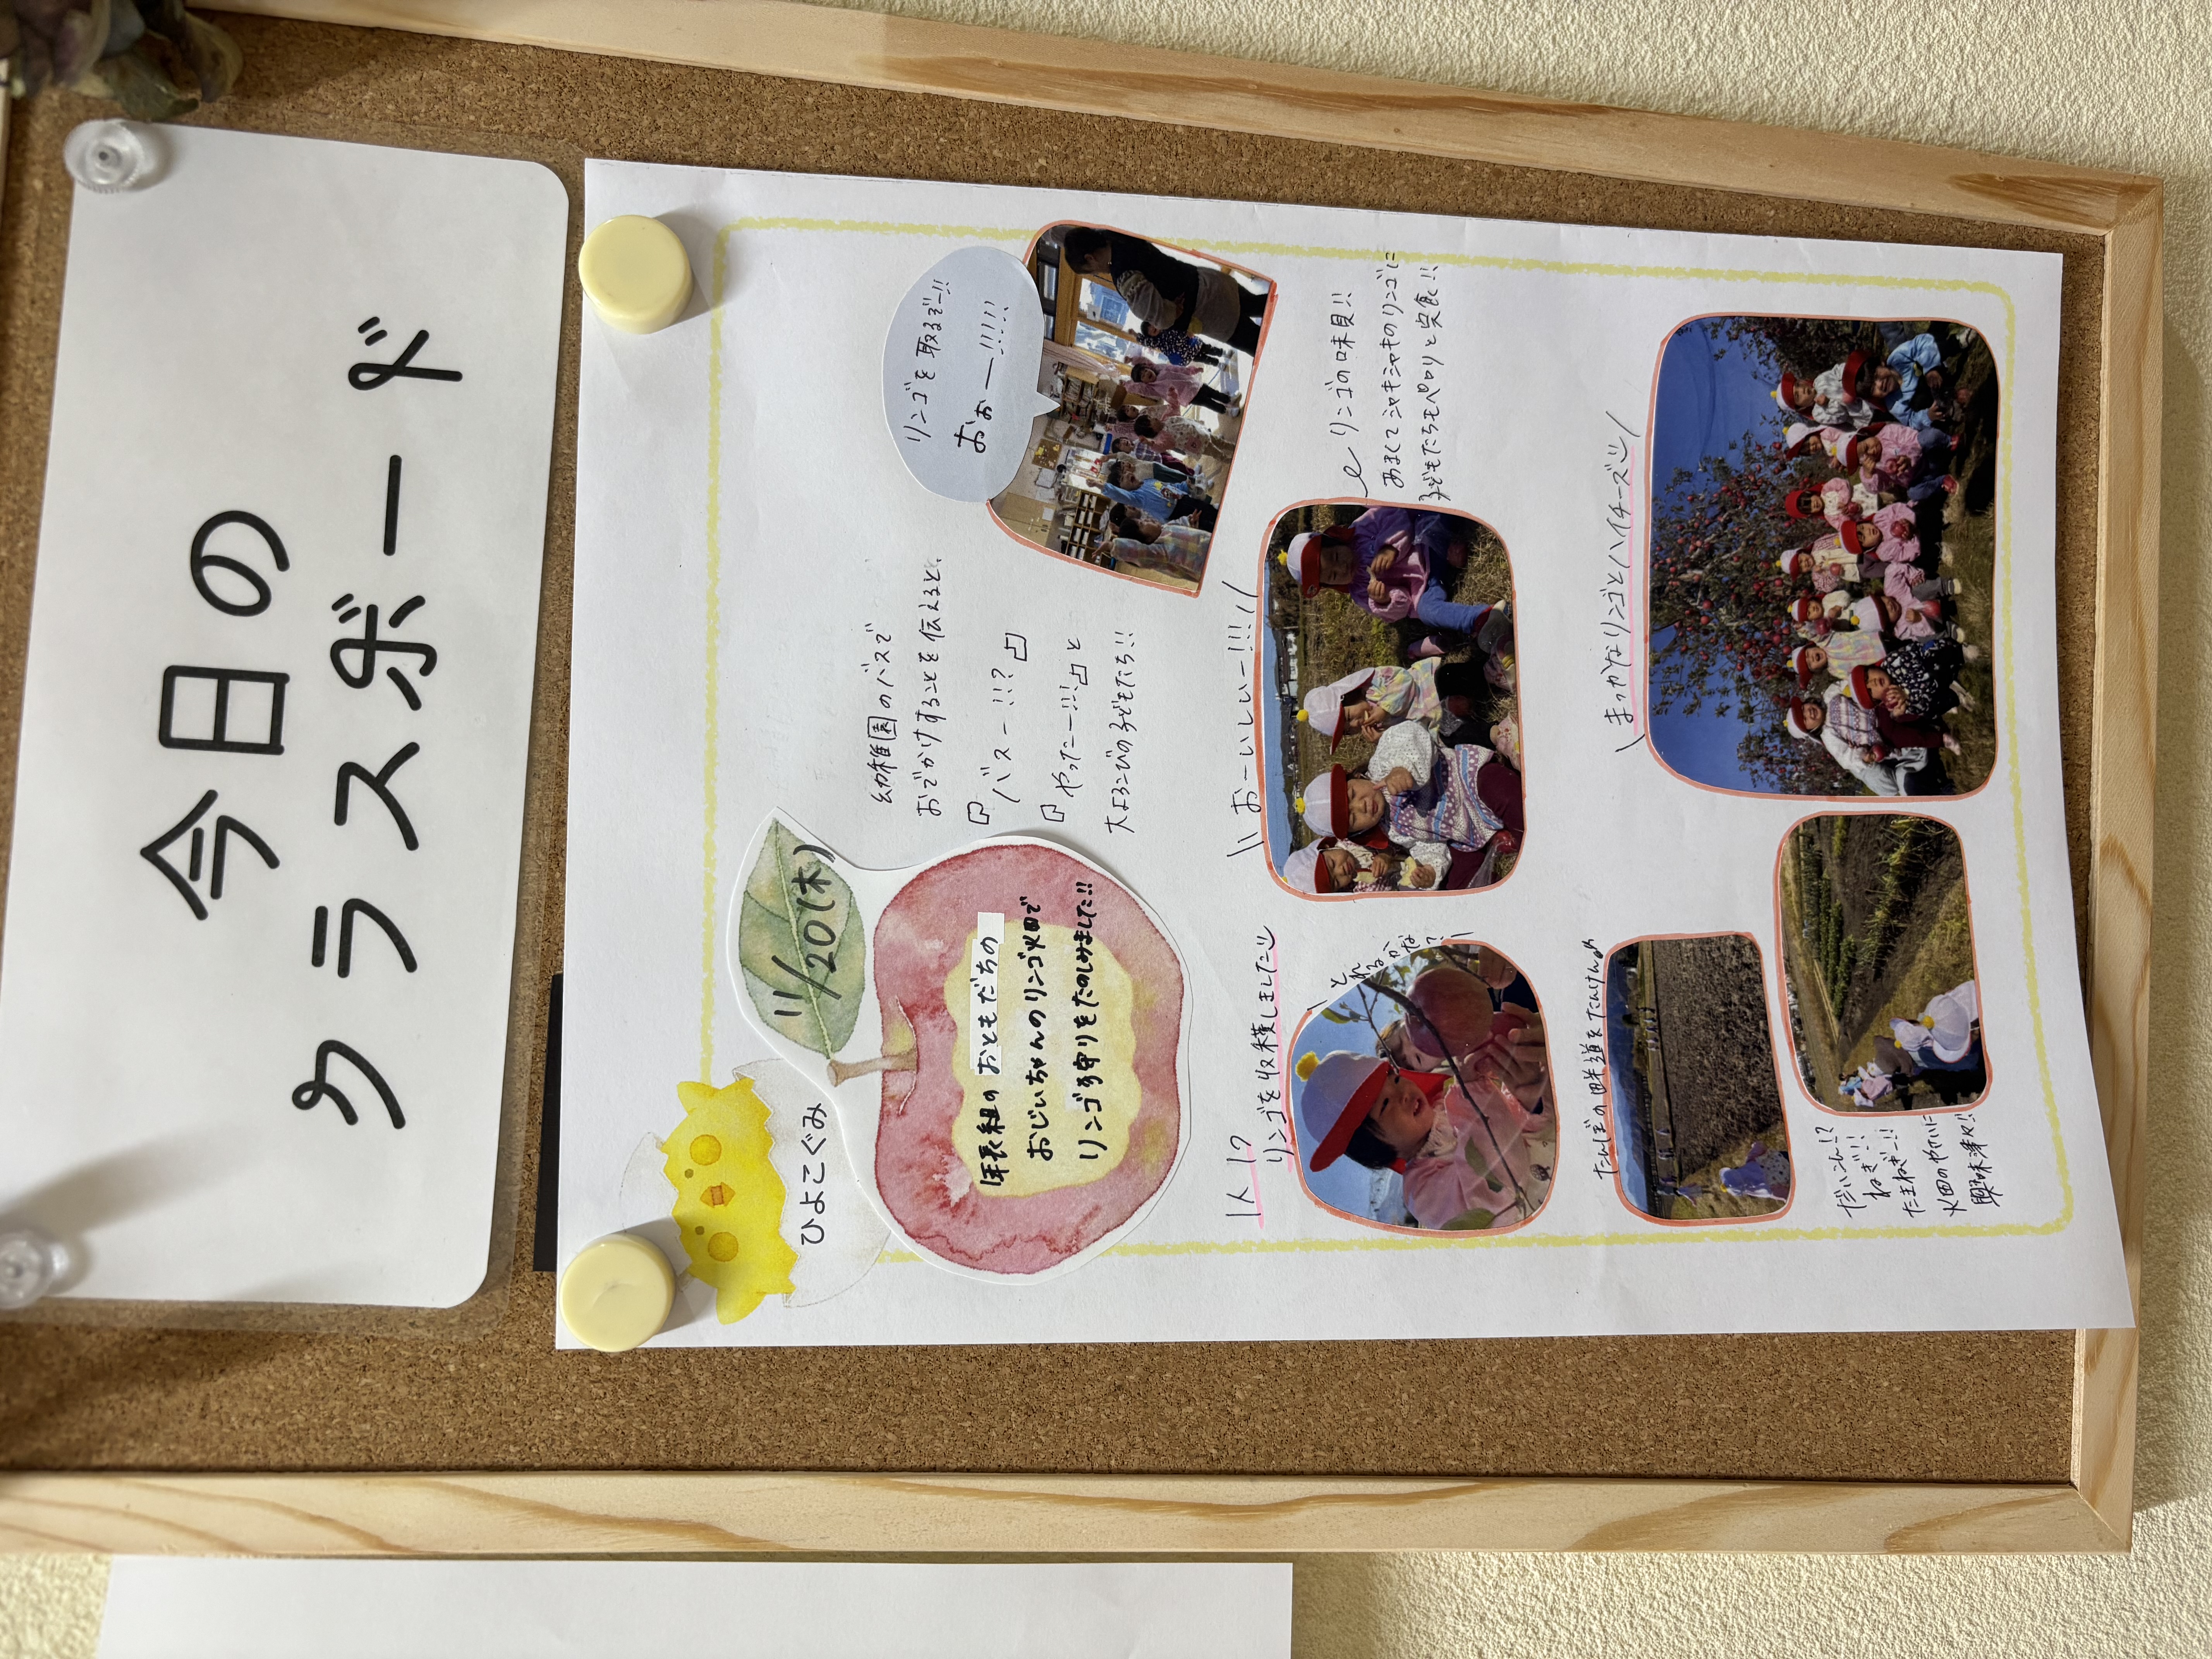 今日の
クラスボード
ひよこぐみ
11/20(木)
年長組のおともだちの
おじいちゃんのリンゴ畑で
リンゴ狩りをたのしみました!!
幼稚園のバスで
おでかけすることを伝えると、
『バスー!!?』
『やったー!!!』と
大よろこびの子どもたち!!
リンゴを取るぞー!!
おぉー!!!!!
1人1?
リンゴを収穫しました
とれるかな?
\\おーいしいー!!!!//
リンゴの味見!!
あまくてシャキシャキのリンゴに
子どもたちもペロリと完食!!
たんぼの畔道をたんけん♪
だいこん!?
ねぎ!!!
たまねぎー!!
畑のやさいに
興味津々!!
\まっかなリンゴとハイチーズ/